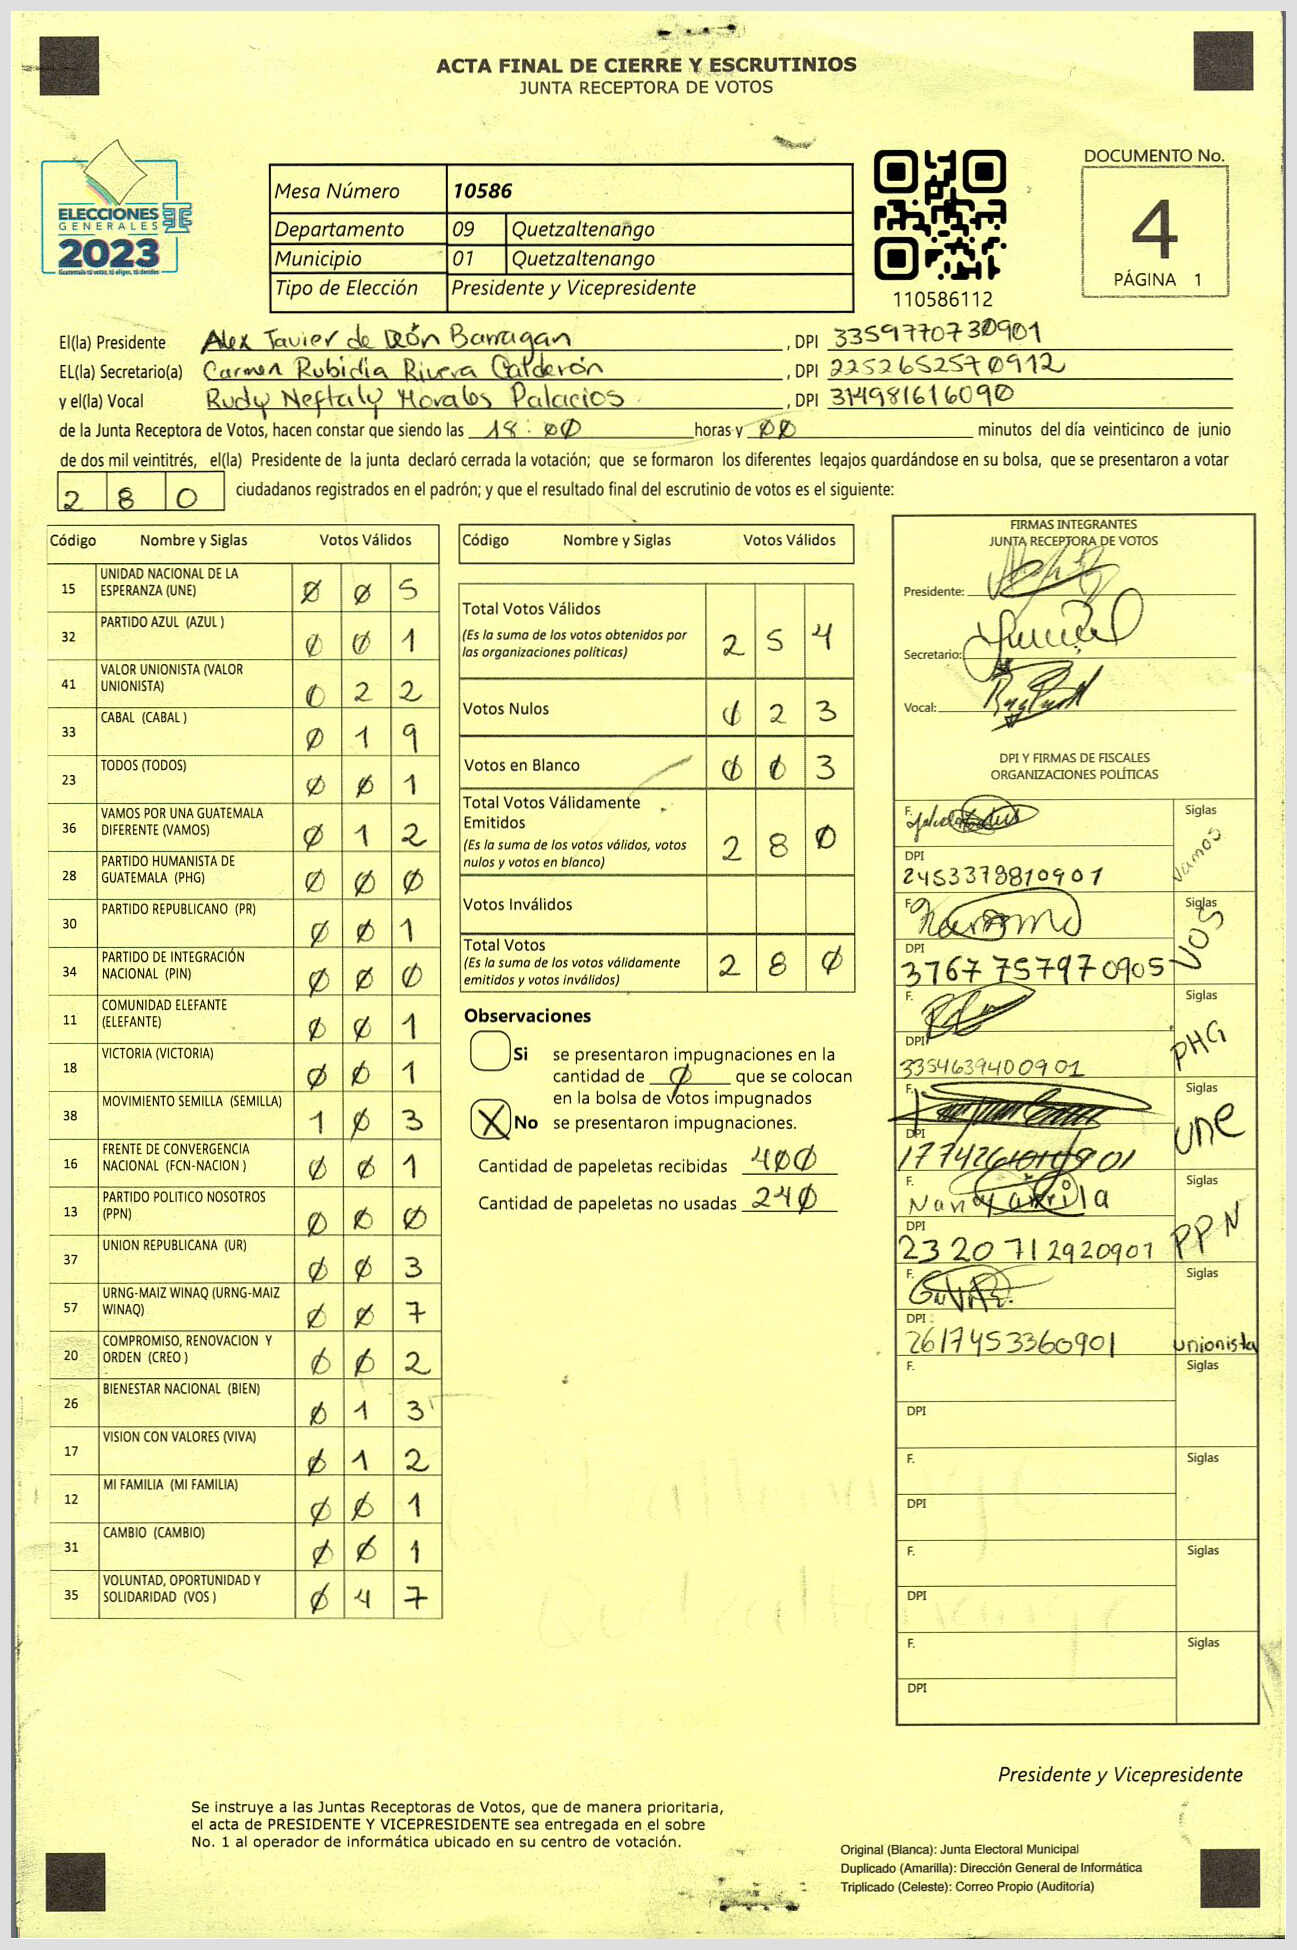 ACTA FINAL DE CIERRE Y ESCRUTINIOS
JUNTA RECEPTORA DE VOTOS
ELECCIONES
GENERALES
2023
Guatemala tú votas, tú eliges, tú decides
Mesa Número 10586
Departamento 09 Quetzaltenango
Municipio 01 Quetzaltenango
Tipo de Elección Presidente y Vicepresidente
110586112
DOCUMENTO No.
4
PÁGINA 1
El(la) Presidente Alex Javier de León Barragan , DPI 3359770730901
EL(la) Secretario(a) Carmen Rubidia Rivera Calderón , DPI 2252652570912
y el(la) Vocal Rudy Neftaly Morales Palacios , DPI 314981616090
de la Junta Receptora de Votos, hacen constar que siendo las 18:00 horas y 00 minutos del día veinticinco de junio
de dos mil veintitrés, el(la) Presidente de la junta declaró cerrada la votación; que se formaron los diferentes legajos guardándose en su bolsa, que se presentaron a votar
280 ciudadanos registrados en el padrón; y que el resultado final del escrutinio de votos es el siguiente:
Código Nombre y Siglas Votos Válidos
15 UNIDAD NACIONAL DE LA ESPERANZA (UNE) 0 0 5
32 PARTIDO AZUL (AZUL ) 0 0 1
41 VALOR UNIONISTA (VALOR UNIONISTA) 0 2 2
33 CABAL (CABAL ) 0 1 9
23 TODOS (TODOS) 0 0 1
36 VAMOS POR UNA GUATEMALA DIFERENTE (VAMOS) 0 1 2
28 PARTIDO HUMANISTA DE GUATEMALA (PHG) 0 0 0
30 PARTIDO REPUBLICANO (PR) 0 0 1
34 PARTIDO DE INTEGRACIÓN NACIONAL (PIN) 0 0 0
11 COMUNIDAD ELEFANTE (ELEFANTE) 0 0 1
18 VICTORIA (VICTORIA) 0 0 1
38 MOVIMIENTO SEMILLA (SEMILLA) 1 0 3
16 FRENTE DE CONVERGENCIA NACIONAL (FCN-NACION ) 0 0 1
13 PARTIDO POLITICO NOSOTROS (PPN) 0 0 0
37 UNION REPUBLICANA (UR) 0 0 3
57 URNG-MAIZ WINAQ (URNG-MAIZ WINAQ) 0 0 7
20 COMPROMISO, RENOVACION Y ORDEN (CREO ) 0 0 2
26 BIENESTAR NACIONAL (BIEN) 0 1 3
17 VISION CON VALORES (VIVA) 0 1 2
12 MI FAMILIA (MI FAMILIA) 0 0 1
31 CAMBIO (CAMBIO) 0 0 1
35 VOLUNTAD, OPORTUNIDAD Y SOLIDARIDAD (VOS ) 0 4 7
Código Nombre y Siglas Votos Válidos
Total Votos Válidos 2 5 4
(Es la suma de los votos obtenidos por
las organizaciones políticas)
Votos Nulos 0 2 3
Votos en Blanco 0 0 3
Total Votos Válidamente
Emitidos 2 8 0
(Es la suma de los votos válidos, votos
nulos y votos en blanco)
Votos Inválidos
Total Votos 2 8 0
(Es la suma de los votos válidamente
emitidos y votos inválidos)
Observaciones
Si se presentaron impugnaciones en la
cantidad de 0 que se colocan
en la bolsa de votos impugnados
X No se presentaron impugnaciones.
Cantidad de papeletas recibidas 400
Cantidad de papeletas no usadas 240
FIRMAS INTEGRANTES
JUNTA RECEPTORA DE VOTOS
Presidente:
Secretario:
Vocal:
DPI Y FIRMAS DE FISCALES
ORGANIZACIONES POLÍTICAS
F. Siglas Vamos
DPI 2453378810901
F. Siglas VOS
DPI 3767757970905
F. Siglas PHG
DPI 3354639400901
F. Siglas UNE
DPI
F. Siglas PPN
DPI 2320712920901
F. Siglas unionista
DPI 2617453360901
F. Siglas
DPI
F. Siglas
DPI
F. Siglas
DPI
F. Siglas
DPI
Presidente y Vicepresidente
Se instruye a las Juntas Receptoras de Votos, que de manera prioritaria,
el acta de PRESIDENTE Y VICEPRESIDENTE sea entregada en el sobre
No. 1 al operador de informática ubicado en su centro de votación.
Original (Blanca): Junta Electoral Municipal
Duplicado (Amarilla): Dirección General de Informática
Triplicado (Celeste): Correo Propio (Auditoría)